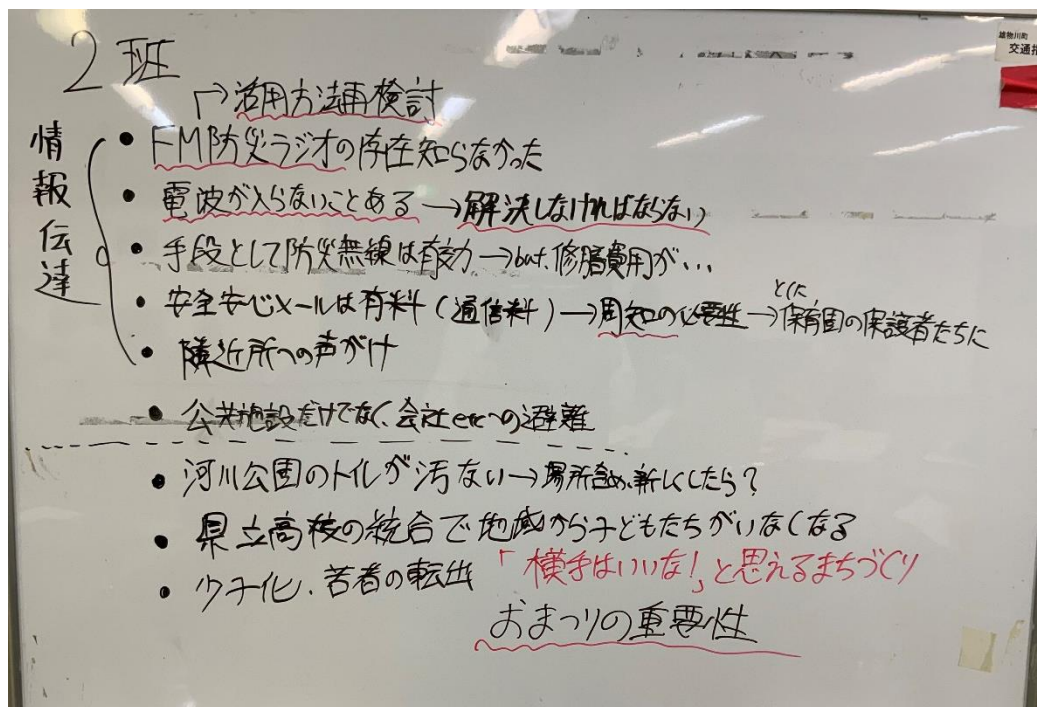 2班
→活用方法再検討
情報伝達
• FM防災ラジオの存在知らなかった
• 電波が入らないことある→解決しなければならない
• 手段として防災無線は有効→but、修膳費用が…
とくに
• 安全安心メールは有料(通信料)→周知の必要性→保育園の保護者たちに
• 隣近所への声がけ
• 公共施設だけでなく、会社etcへの避難
• 河川公園のトイレが汚ない→場所含め、新しくしたら?
• 県立高校の統合で地域から子どもたちがいなくなる
• 少子化、若者の転出 「横手はいいな!」と思えるまちづくり
おまつりの重要性
雄物川町
交通指